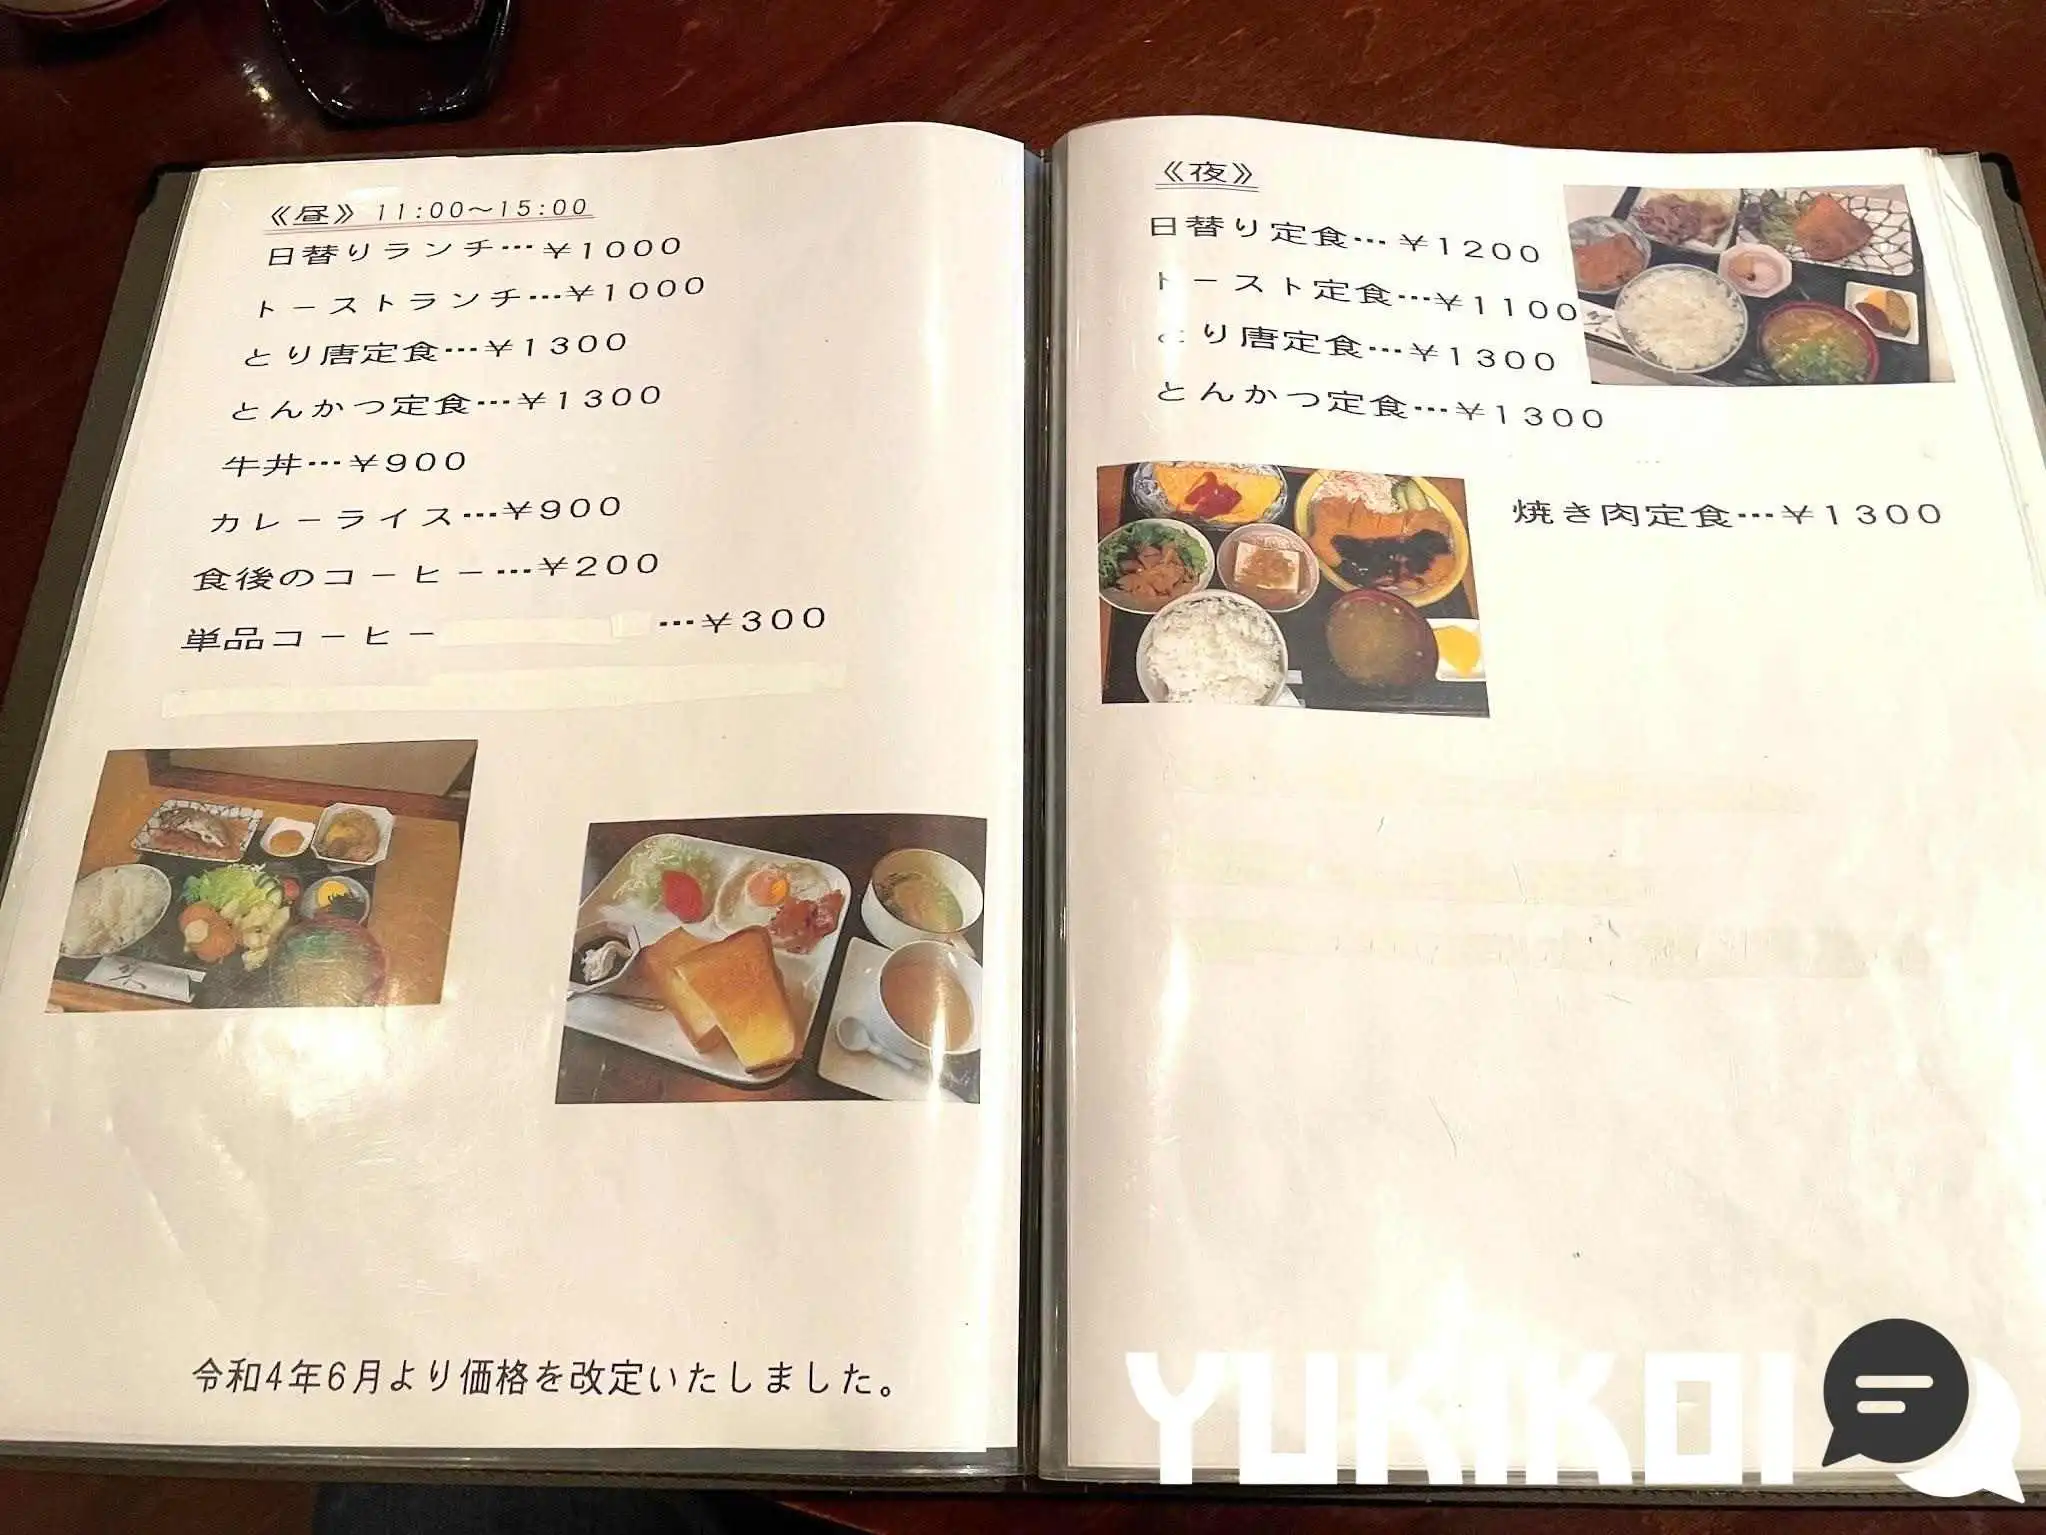 《昼》11:00～15:00
日替りランチ…￥1000
トーストランチ…￥1000
とり唐定食…￥1300
とんかつ定食…￥1300
牛丼…￥900
カレーライス…￥900
食後のコーヒー…￥200
単品コーヒー …￥300
令和4年6月より価格を改定いたしました。
《夜》
日替り定食…￥1200
トースト定食…￥1100
とり唐定食…￥1300
とんかつ定食…￥1300
焼き肉定食…￥1300
YUKIKOI